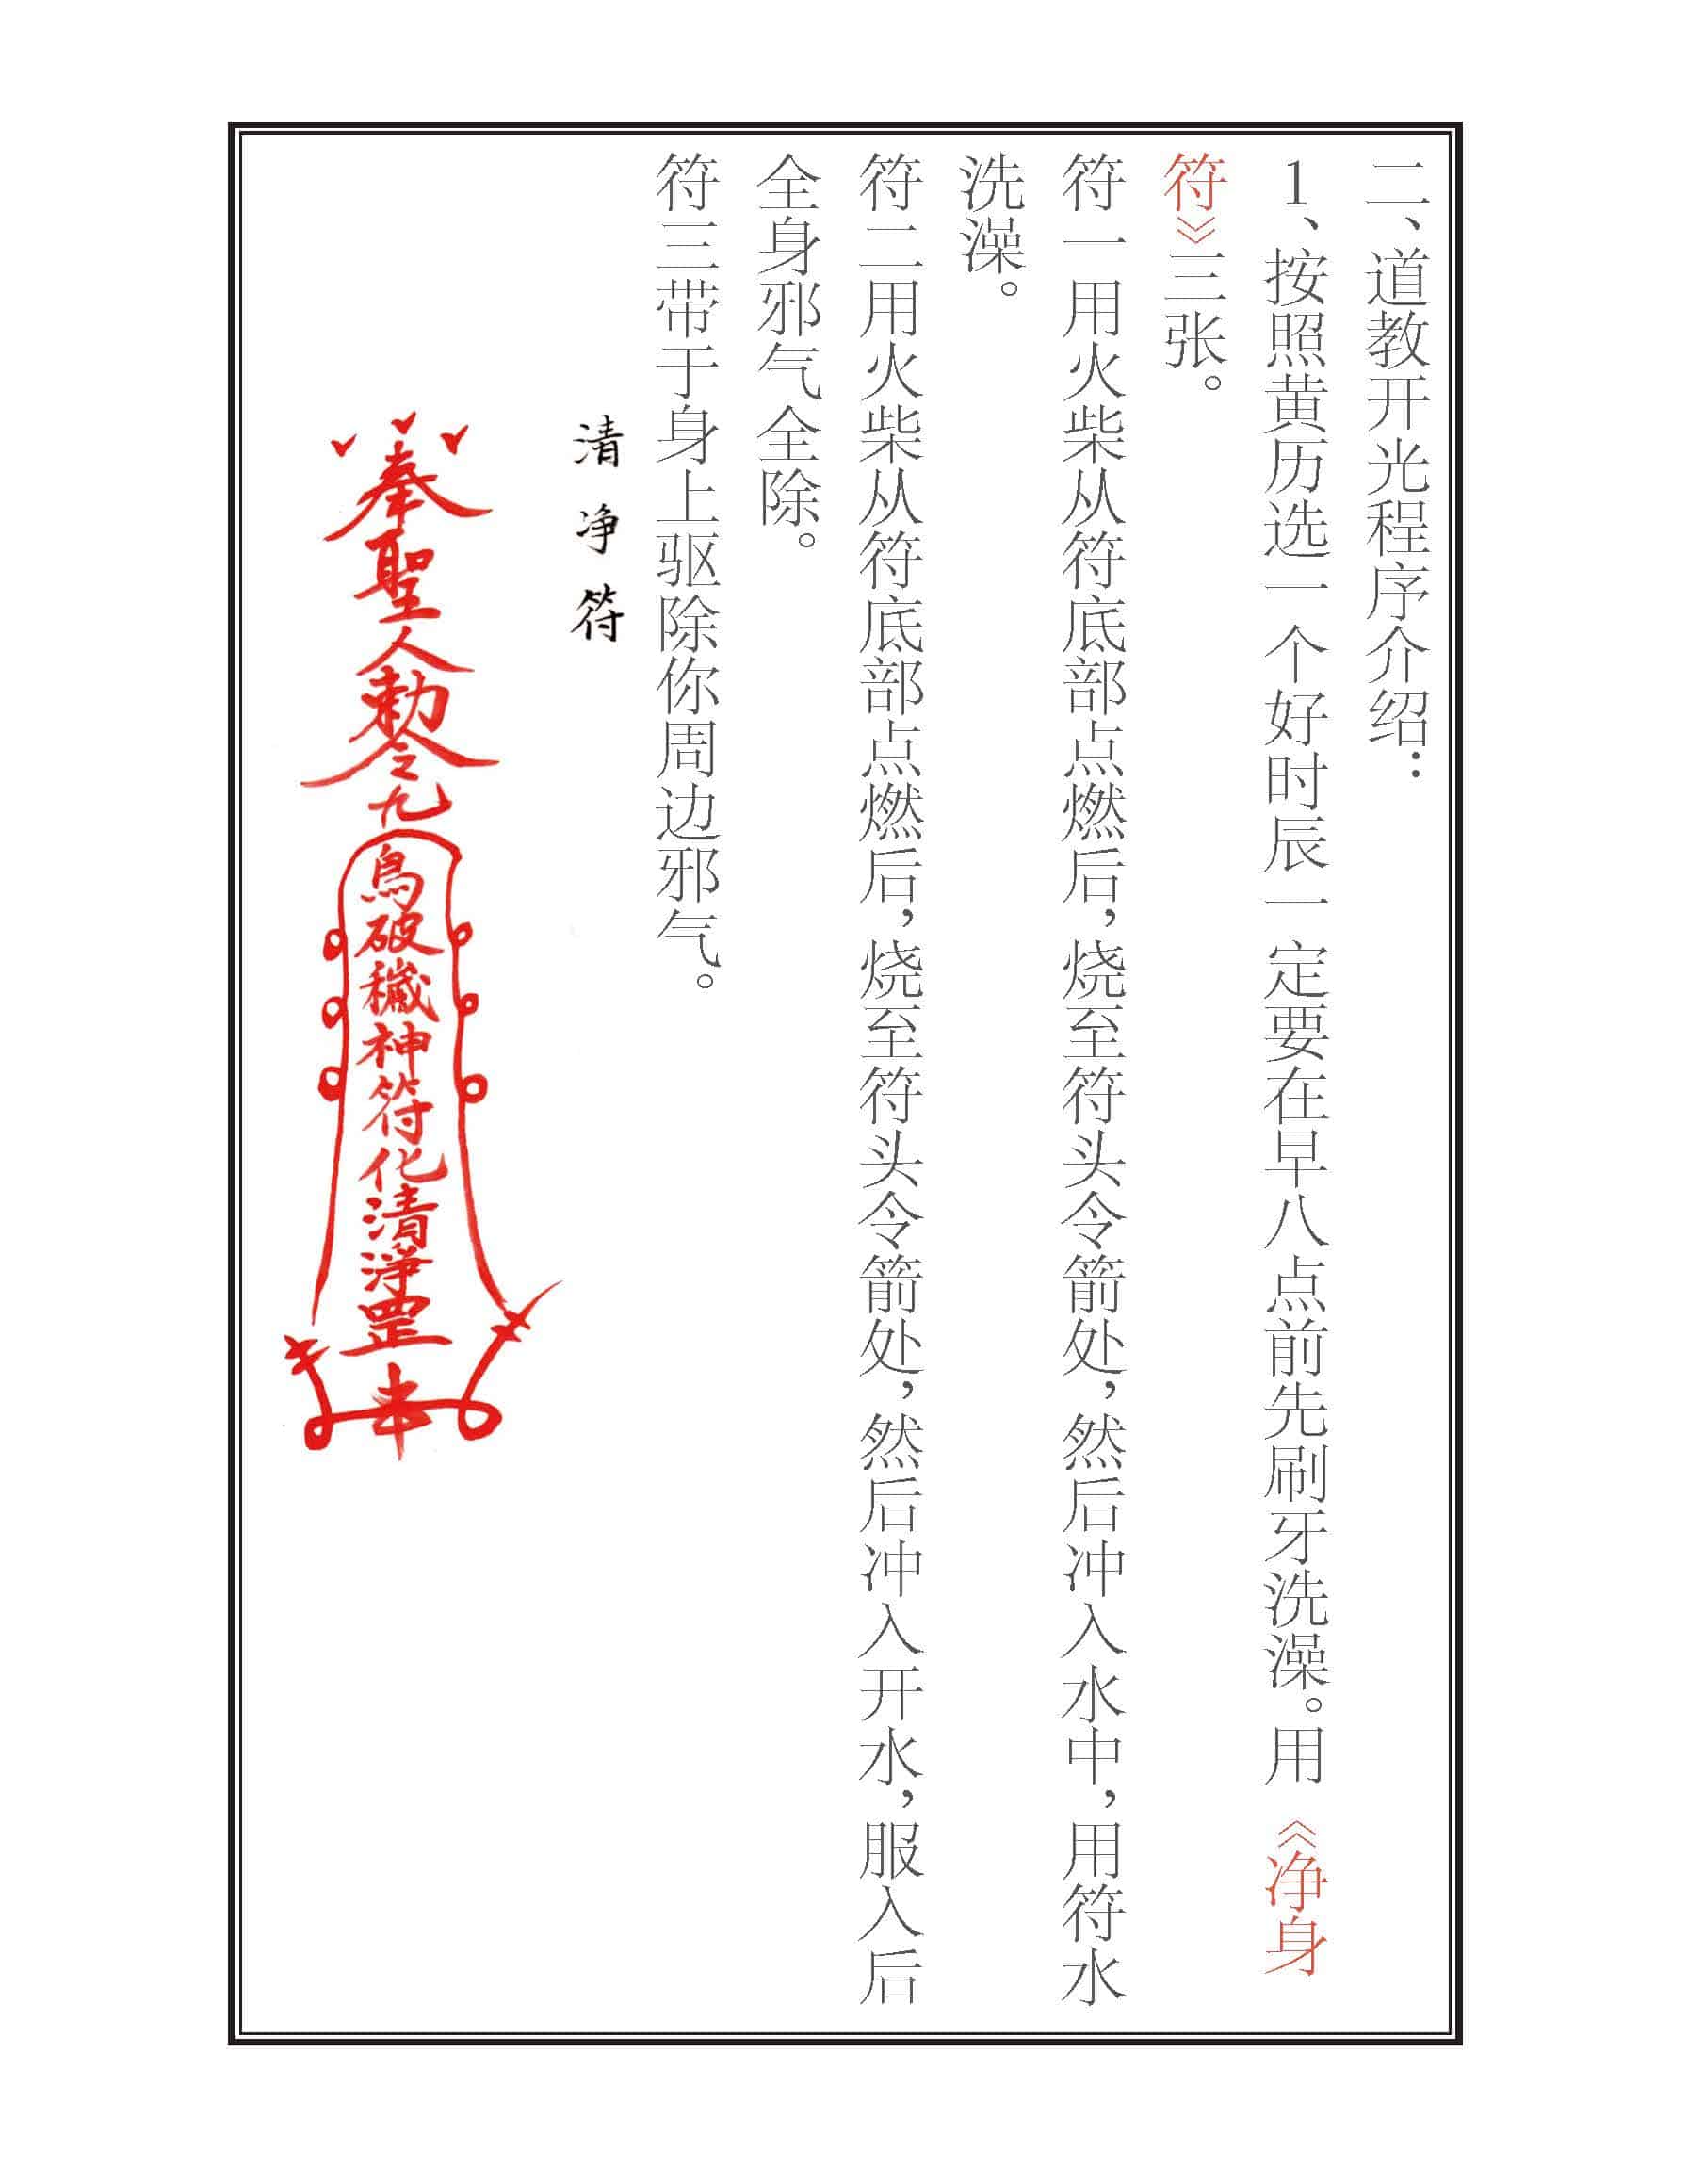 二、道教开光程序介绍：
1、按照黄历选一个好时辰一定要在早八点前先刷牙洗澡。用《净身
符》三张。
符一用火柴从符底部点燃后，烧至符头令箭处，然后冲入水中，用符水
洗澡。
符二用火柴从符底部点燃后，烧至符头令箭处，然后冲入开水，服入后
全身邪气全除。
符三带于身上驱除你周边邪气。
清净符
奉聖人勅令九鳥破穢神符化清淨罡